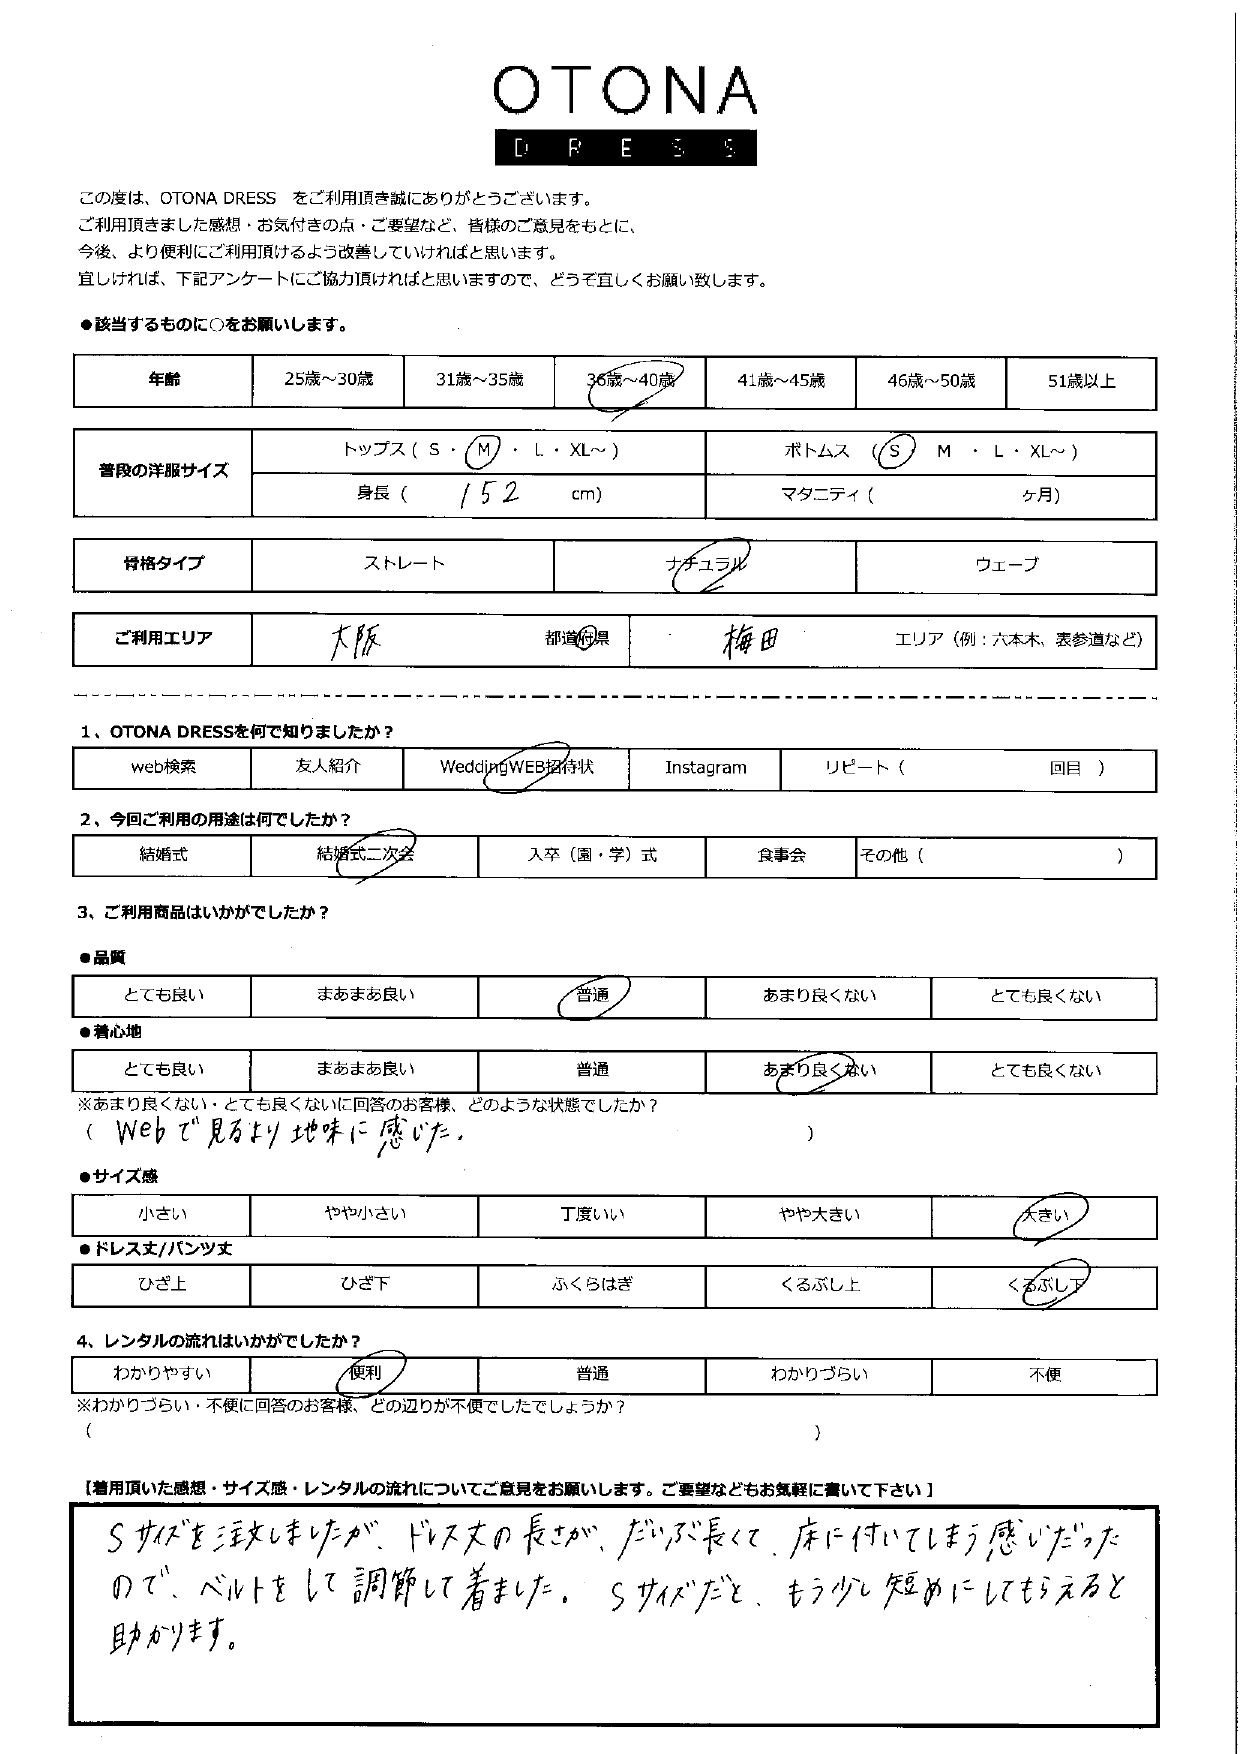 OTONA
DRESS
この度は、OTONA DRESS をご利用頂き誠にありがとうございます。
ご利用頂きました感想・お気付きの点・ご要望など、皆様のご意見をもとに、
今後、より便利にご利用頂けるよう改善していければと思います。
宜しければ、下記アンケートにご協力頂ければと思いますので、どうぞ宜しくお願い致します。
●該当するものに○をお願いします。
年齢 25歳～30歳 31歳～35歳 36歳～40歳 41歳～45歳 46歳～50歳 51歳以上
普段の洋服サイズ トップス ( S ・ M ・ L ・ XL～ ) ボトムス ( S M ・ L ・ XL～ )
身長 ( 152 cm) マタニティ ( ヶ月)
骨格タイプ ストレート ナチュラル ウェーブ
ご利用エリア 大阪 都道府県 梅田 エリア（例：六本木、表参道など）
1、OTONA DRESSを何で知りましたか？
web検索 友人紹介 WeddingWEB招待状 Instagram リピート ( 回目 )
2、今回ご利用の用途は何でしたか？
結婚式 結婚式二次会 入卒（園・学）式 食事会 その他 ( )
3、ご利用商品はいかがでしたか？
●品質
とても良い まあまあ良い 普通 あまり良くない とても良くない
●着心地
とても良い まあまあ良い 普通 あまり良くない とても良くない
※あまり良くない・とても良くないに回答のお客様、どのような状態でしたか？
( Webで見るより地味に感じた. )
●サイズ感
小さい やや小さい 丁度いい やや大きい 大きい
●ドレス丈/パンツ丈
ひざ上 ひざ下 ふくらはぎ くるぶし上 くるぶし下
4、レンタルの流れはいかがでしたか？
わかりやすい 便利 普通 わかりづらい 不便
※わかりづらい・不便に回答のお客様、どの辺りが不便でしたでしょうか？
( )
【着用頂いた感想・サイズ感・レンタルの流れについてご意見をお願いします。ご要望などもお気軽に書いて下さい】
Sサイズを注文しましたが、ドレス丈の長さが、だいぶ長くて、床に付いてしまう感じだった
ので、ベルトをして調節して着ました。Sサイズだと、もう少し短めにしてもらえると
助かります。